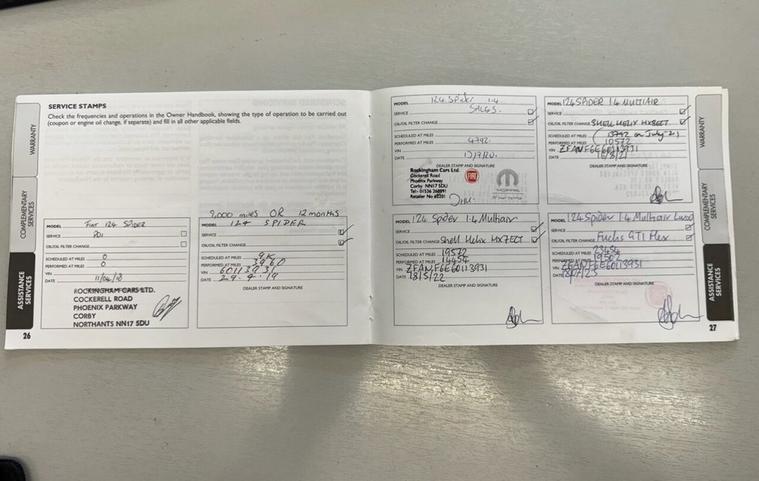 SERVICE STAMPS
Check the frequencies and operations in the Owner Handbook, showing the type of operation to be carried out
(coupon or engine oil change, if separate) and fill in all other applicable fields.
WARRANTY
COMPLEMENTARY SERVICES
ASSISTANCE SERVICES
26
MODEL Fiat 124 SPIDER
SERVICE PDI
OIL/OIL FILTER CHANGE
SCHEDULED AT MILES 0
PERFORMED AT MILES 0
VIN
DATE
ROCKINGHAM CARS LTD.
COCKERELL ROAD
PHOENIX PARKWAY
CORBY
NORTHANTS NN17 5DU
9,000 miles OR 12 months
MODEL 124 SPIDER
SERVICE
OIL/OIL FILTER CHANGE
SCHEDULED AT MILES 9K
PERFORMED AT MILES 3960
VIN 60113931
DATE
DEALER STAMP AND SIGNATURE
MODEL 124 Spider 1.4
SERVICE
OIL/OIL FILTER CHANGE
SCHEDULED AT MILES
PERFORMED AT MILES 4792
VIN
DATE
DEALER STAMP AND SIGNATURE
Rockingham Cars Ltd.
Cockerell Road
Phoenix Parkway
Corby NN17 5DU
FIAT
MODEL 124 SPIDER 1.4 MULTIAIR
SERVICE
OIL/OIL FILTER CHANGE SHELL HELIX HX8ECT
SCHEDULED AT MILES
PERFORMED AT MILES 10572
VIN ZFANF6E60113931
DATE
DEALER STAMP AND SIGNATURE
MODEL 124 Spider 1.4 Multiair
SERVICE
OIL/OIL FILTER CHANGE Shell Helix HX7ECT
SCHEDULED AT MILES 19572
PERFORMED AT MILES
VIN ZFANF6E60113931
DATE 18/5/22
DEALER STAMP AND SIGNATURE
MODEL 124 Spider 1.4 Multiair
SERVICE
OIL/OIL FILTER CHANGE Fuchs GTI Flex
SCHEDULED AT MILES
PERFORMED AT MILES
VIN ZFANF6E60113931
DATE
DEALER STAMP AND SIGNATURE
WARRANTY
COMPLEMENTARY SERVICES
ASSISTANCE SERVICES
27